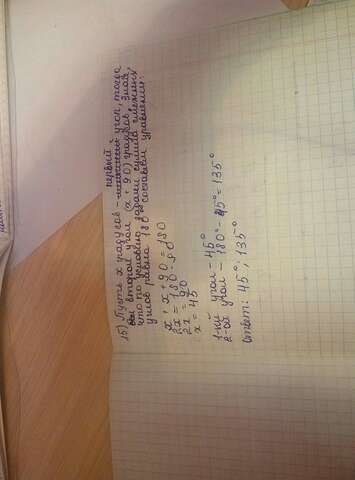 первый
15) Пусть x градусов - угол, тогда
второй угол (x + 90) градусов, зная,
что по условию задачи сумма смежных
углов равна 180 составим уравнение:
x + x + 90 = 180
2x = 180 - 90
2x = 90
x = 45
1-ый угол - 45°
2-ой угол - 180° - 45° = 135°
ответ: 45°, 135°